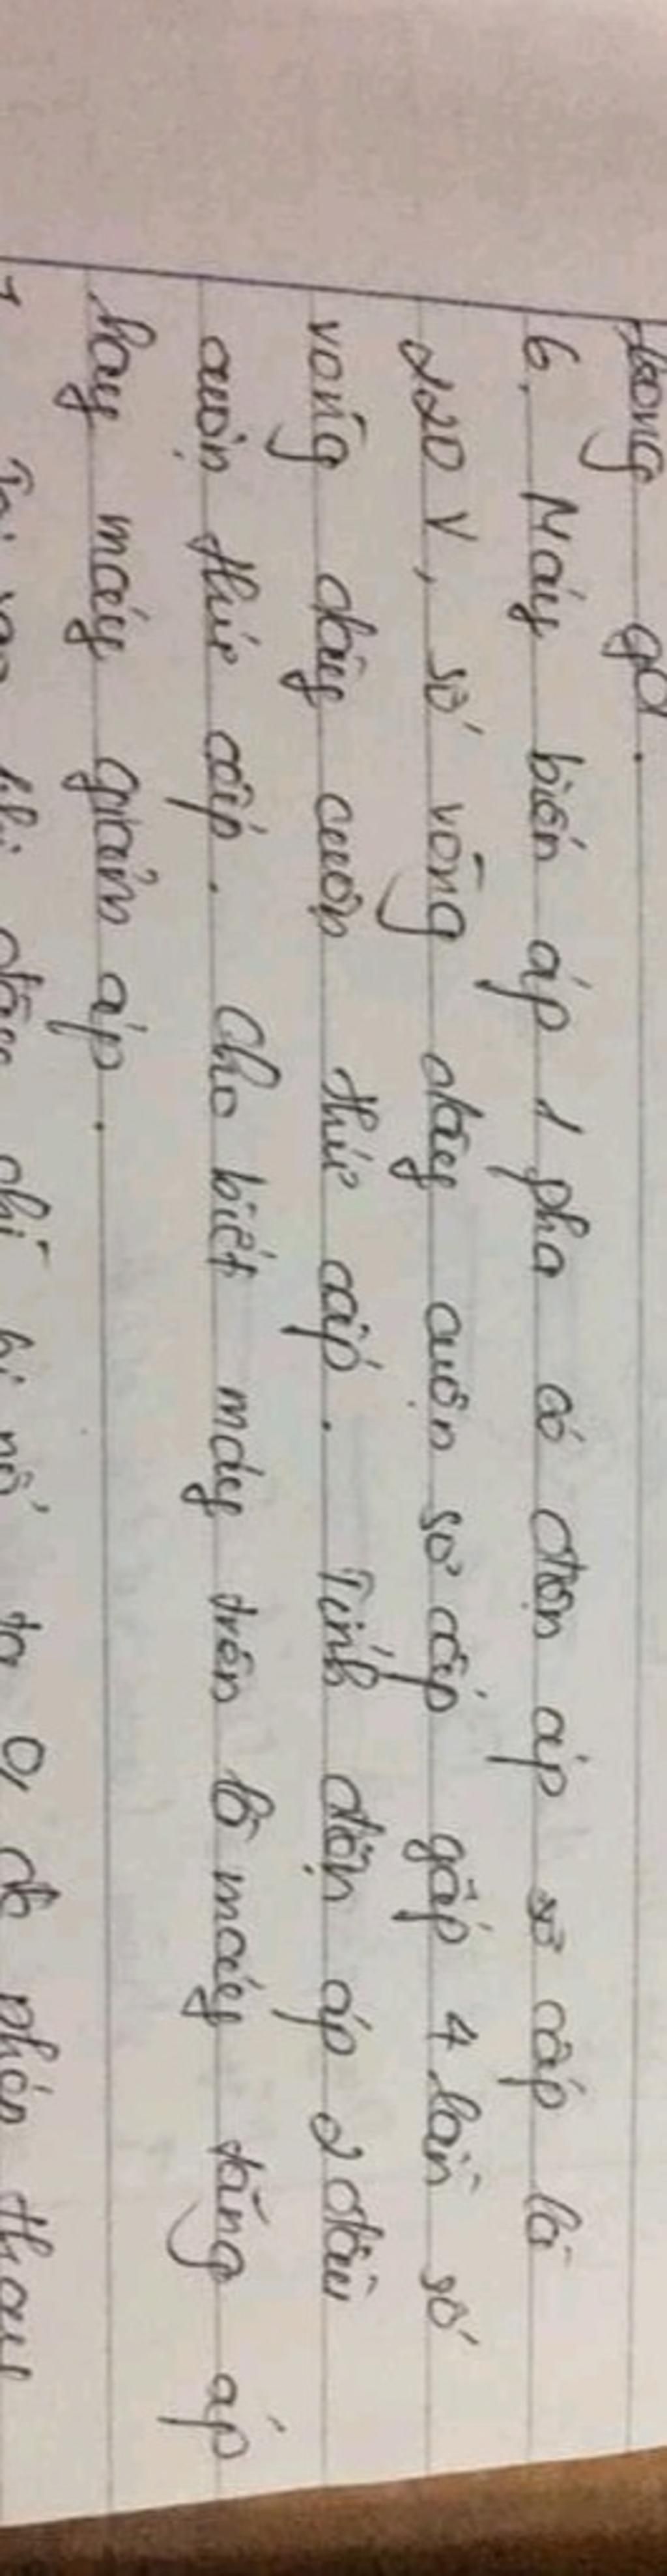 trong gd.
6. Máy biến áp 1 pha có điện áp sơ cấp là
220 V, số vòng dây cuộn sơ cấp gấp 4 lần số
vòng dây cuộn thứ cấp. Tính điện áp 2 đầu
cuộn thứ cấp. Cho biết máy trên là máy tăng áp
hay máy giảm áp.
7 chì bị nổ ta